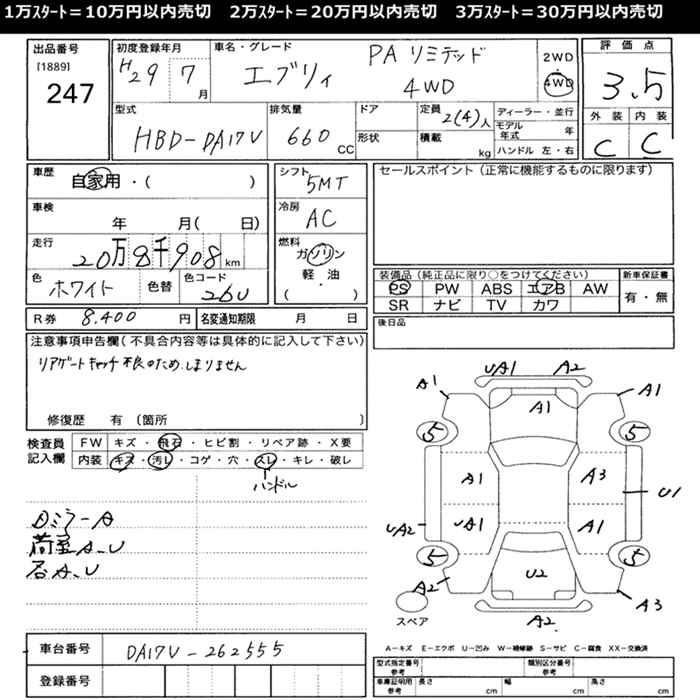 1万スタート=10万円以内売切　2万スタート=20万円以内売切　3万スタート=30万円以内売切
出品番号
[1889]
247
初度登録年月
H29 7月
車名・グレード
エブリィ PA リミテッド 4WD
2WD
4WD
評価点
3.5
外装 内装
C C
型式
HBD-DA17V
排気量
660 CC
ドア
形状
定員 2(4)人
積載 kg
ディーラー・並行
モデル年式 年
ハンドル 左・右
車歴
自家用・( )
車検
年 月( 日)
走行
20万8千908km
色
ホワイト
色替
色コード
26U
シフト
5MT
冷房
AC
燃料
ガソリン
軽・油
( )
セールスポイント(正常に機能するものに限ります)
装備品(純正品に限り○をつけてください)
PS PW ABS エアB AW
SR ナビ TV カワ
新車保証書
有・無
R券 8.400円
名変通知期限 月 日
後日品
注意事項申告欄(不具合内容等は具体的に記入して下さい)
リアゲートキャッチ不良のため、しまりません
修復歴 有 〔箇所 〕
検査員記入欄
FW キズ・飛石・ヒビ割・リペア跡・X要
内装 キズ・汚レ・コゲ・穴・スレ・キレ・破レ
ハンドル
ミラーA
荷室A.U
A.U
車台番号 DA17V-262555
登録番号
UA1 A2
A1 A1 A1
5 5
A1 A3
U1
UA2 UA1 A1
5 5
U2
A2 A3
A2
スペア
A-キズ E-エクボ U-凹み W-補修跡 S-サビ C-腐食 XX-交換済
型式指定番号 参考
類別区分番号 参考
車庫証明用 参考 長さ cm 幅 cm 高さ cm